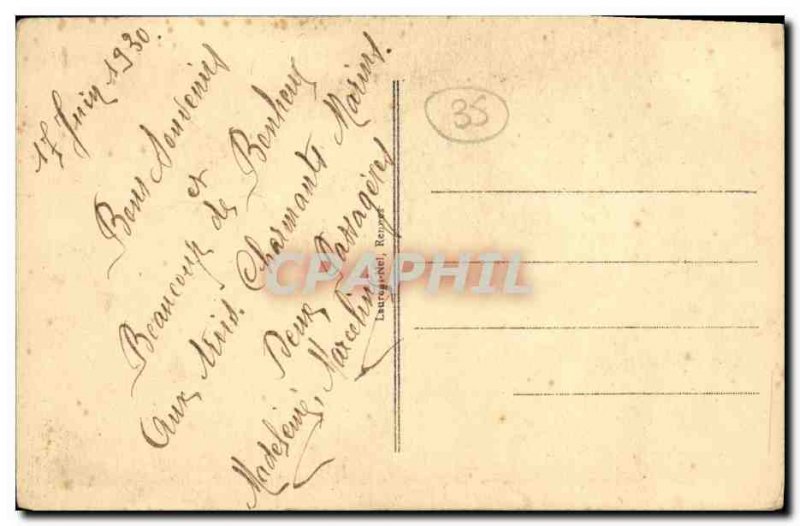 17 Juin 1930.
Bons Souvenirs
et
Beaucoup de Bonheur
Aux trois Charmants Marins.
Deux Passagères
Madeleine, Marceline
Laurent-Nel, Rennes
35
CPAPHIL